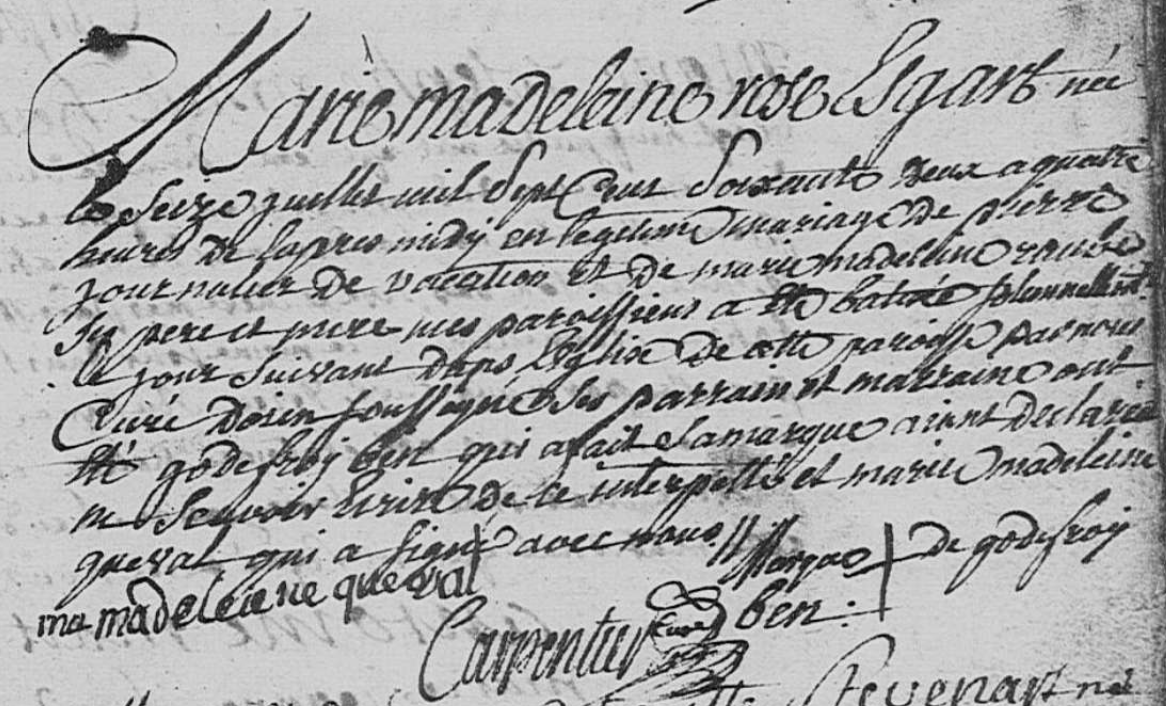 Marie madeleine rose Esgart née
le Seize juillet mil Sept Cent Soixante deux a quatre
heures de l'apres midy en legitime mariage de pierre
journalier de vacation et de marie madeleine
Ses pere et mere mes paroissiens a été batisée solennellement
le jour suivant dans l'Eglise de cette paroisse par nous
Curé Doien soussigné Ses parrain et marraine ont
été godefroy ben qui a fait Sa marque aiant declaré
ne Scavoir Ecrire de ce interpellé et marie madeleine
queval qui a Signé avec nous // Marque de godefroy
ma madeleiene queval
Carpentier Curé ben.
Stevenart né